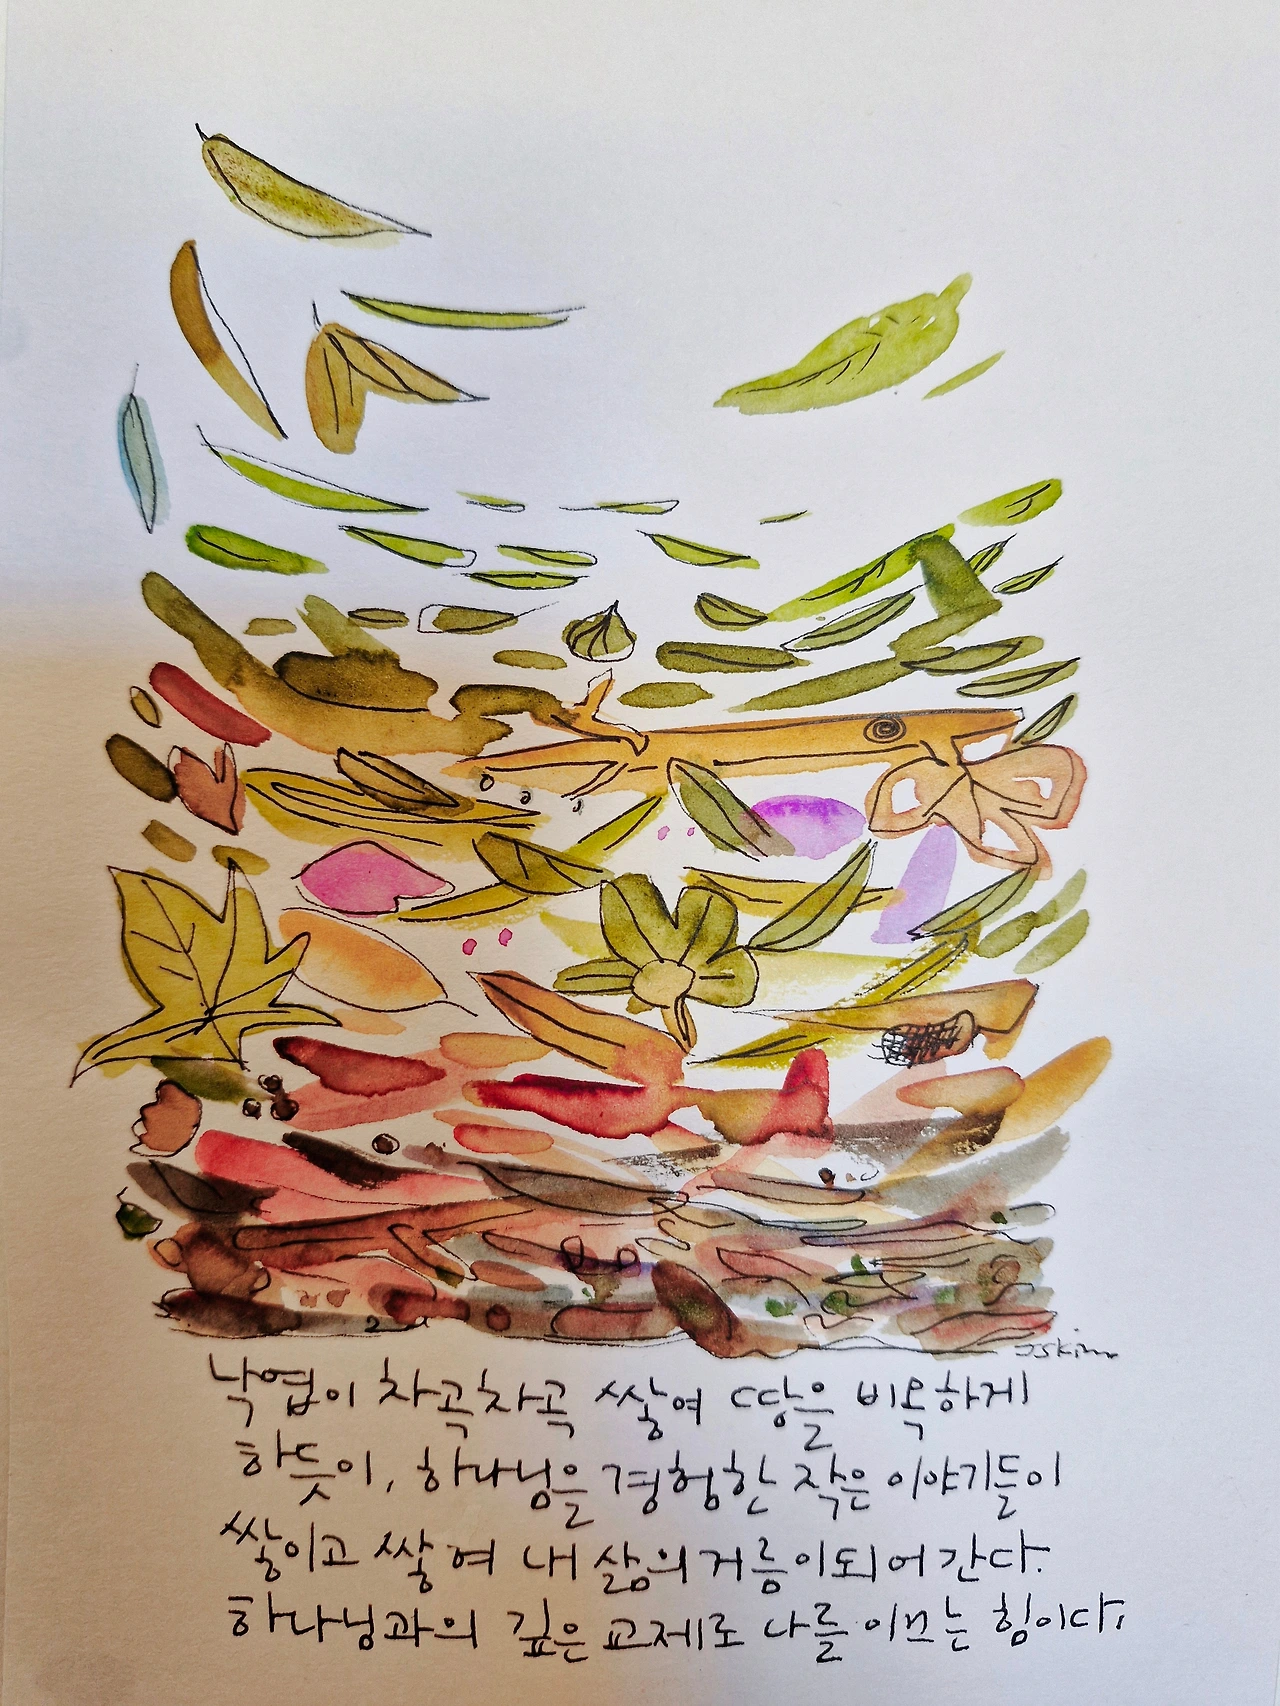 JSKim
낙엽이 차곡차곡 쌓여 땅을 비옥하게
하듯이, 하나님을 경험한 작은 이야기들이
쌓이고 쌓여 내 삶의 거름이 되어 간다.
하나님과의 깊은 교제로 나를 이끄는 힘이다.